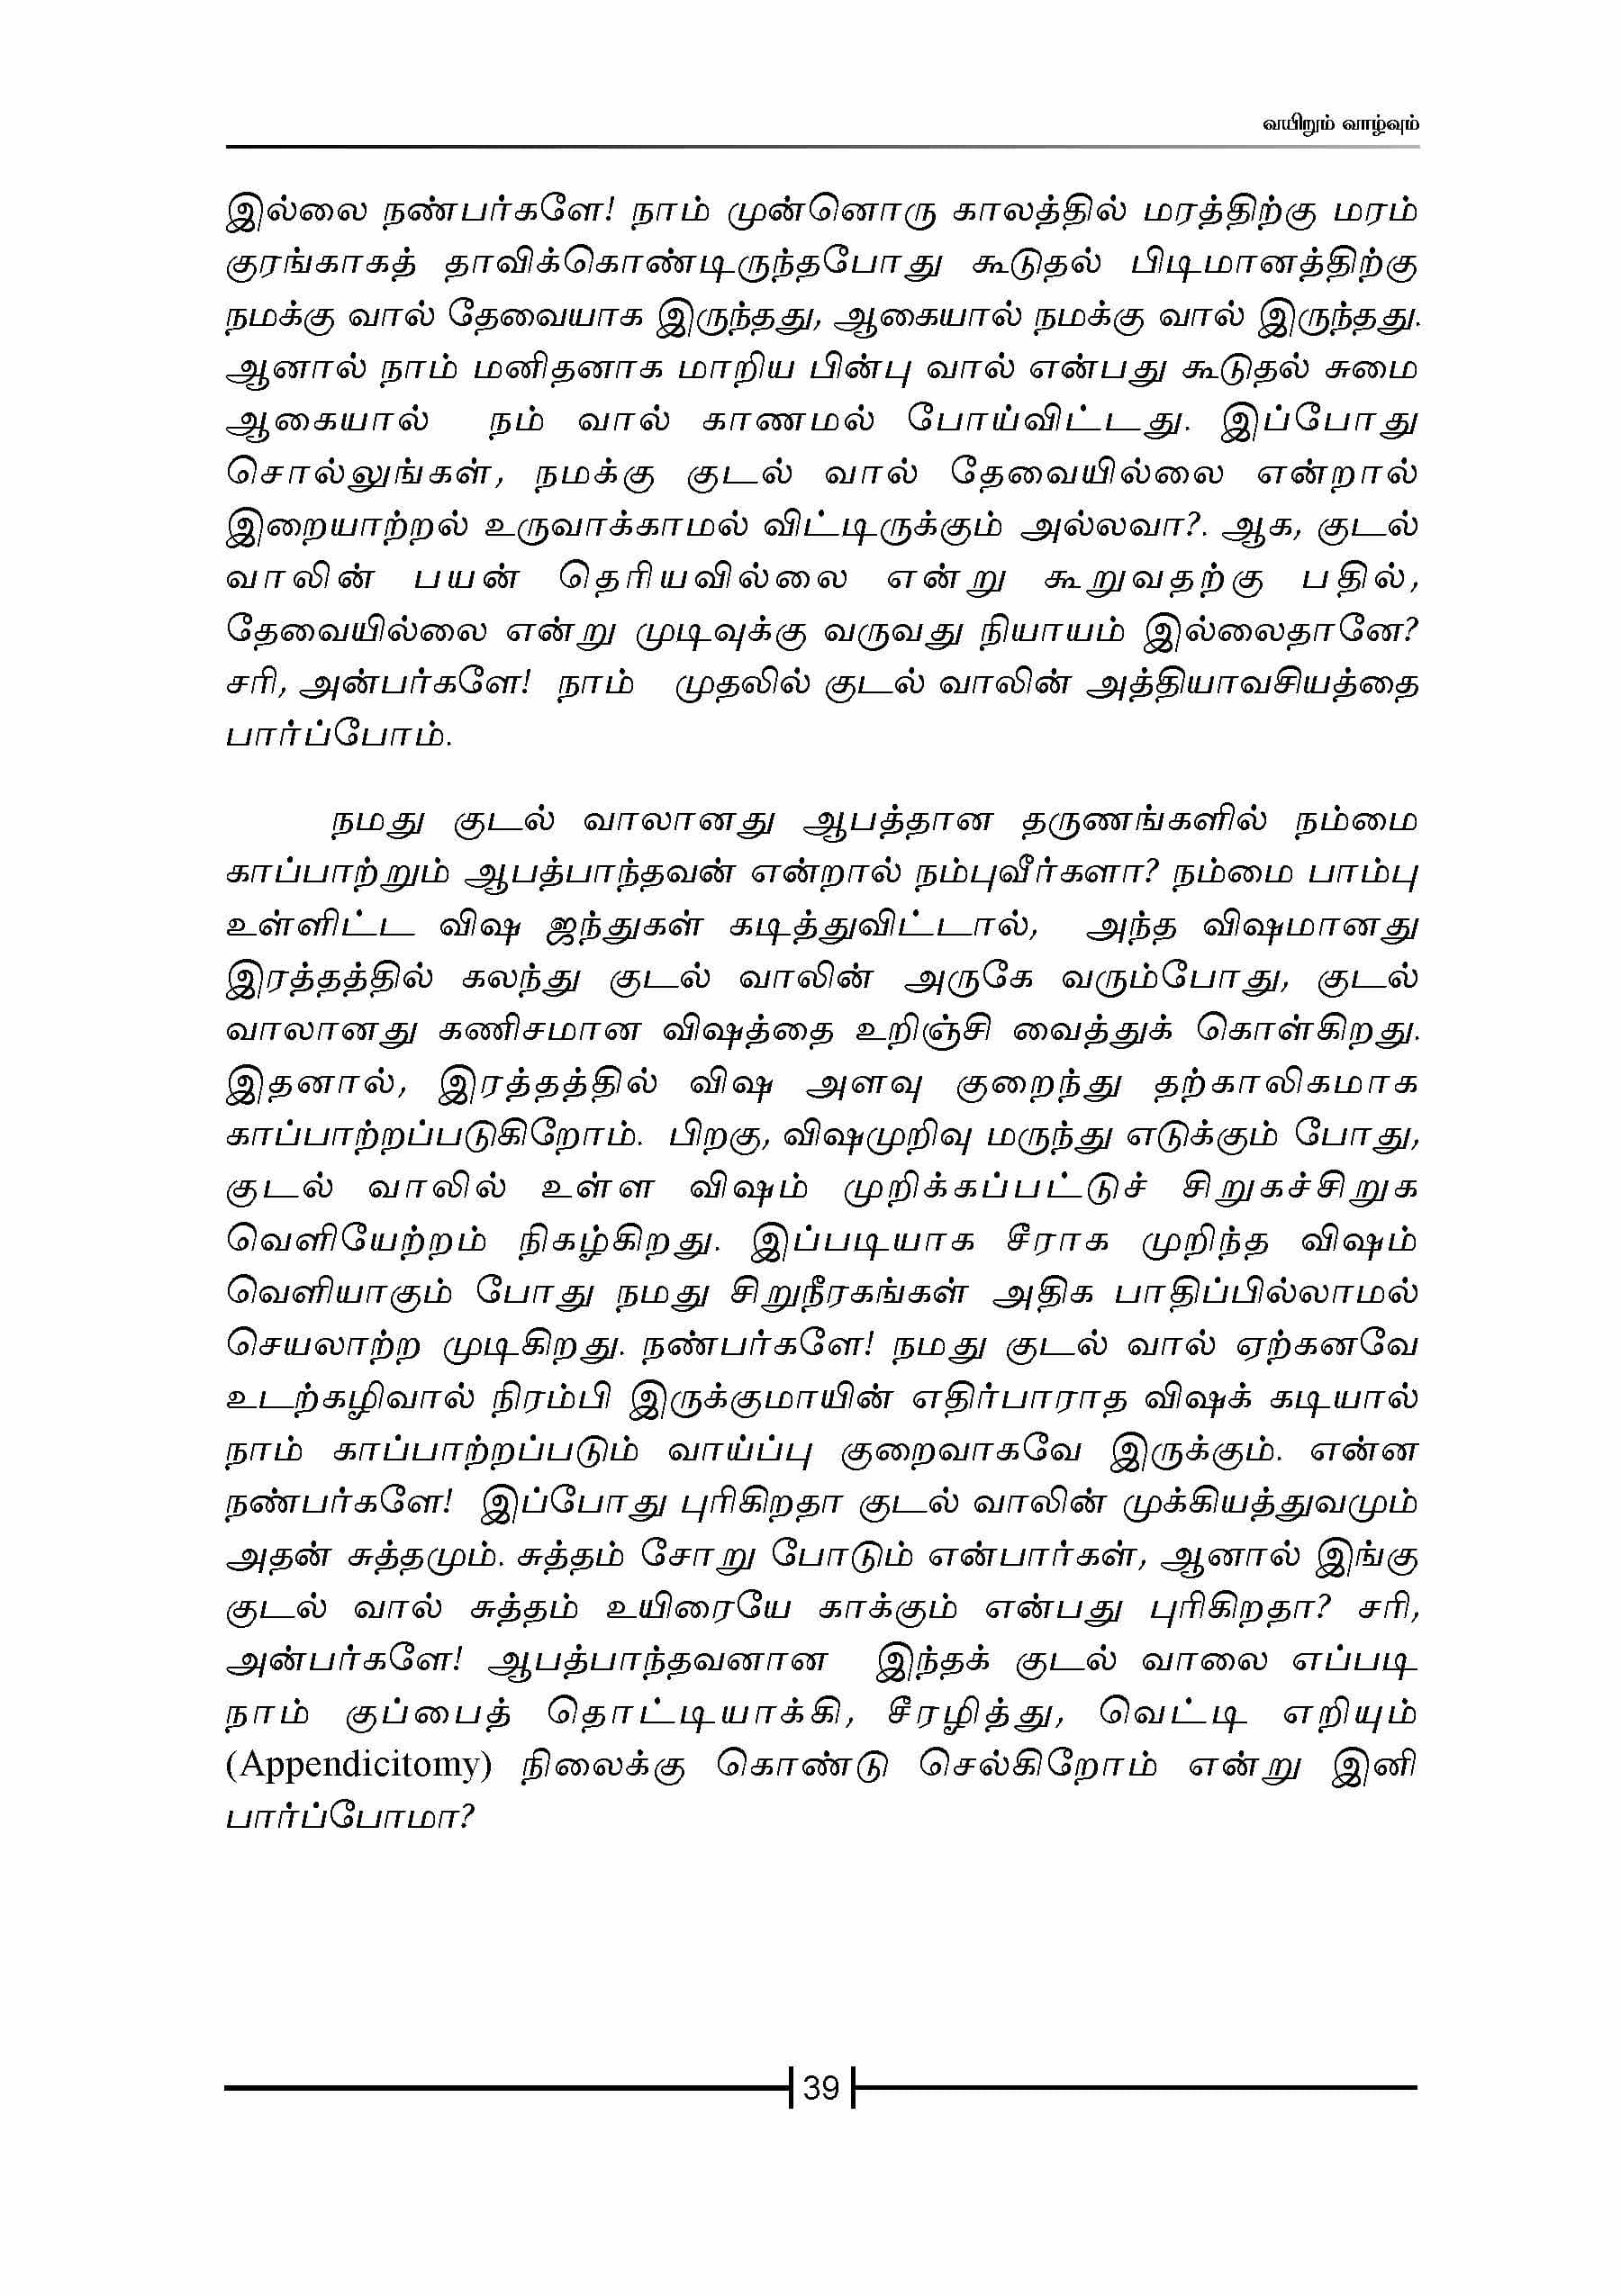 வயிறும் வாழ்வும்
இல்லை நண்பர்களே! நாம் முன்னொரு காலத்தில் மரத்திற்கு மரம்
குரங்காகத் தாவிக்கொண்டிருந்தபோது கூடுதல் பிடிமானத்திற்கு
நமக்கு வால் தேவையாக இருந்தது, ஆகையால் நமக்கு வால் இருந்தது.
ஆனால் நாம் மனிதனாக மாறிய பின்பு வால் என்பது கூடுதல் சுமை
ஆகையால் நம் வால் காணமல் போய்விட்டது. இப்போது
சொல்லுங்கள், நமக்கு குடல் வால் தேவையில்லை என்றால்
இறையாற்றல் உருவாக்காமல் விட்டிருக்கும் அல்லவா?. ஆக, குடல்
வாலின் பயன் தெரியவில்லை என்று கூறுவதற்கு பதில்,
தேவையில்லை என்று முடிவுக்கு வருவது நியாயம் இல்லைதானே?
சரி, அன்பர்களே! நாம் முதலில் குடல் வாலின் அத்தியாவசியத்தை
பார்ப்போம்.
நமது குடல் வாலானது ஆபத்தான தருணங்களில் நம்மை
காப்பாற்றும் ஆபத்பாந்தவன் என்றால் நம்புவீர்களா? நம்மை பாம்பு
உள்ளிட்ட விஷ ஜந்துகள் கடித்துவிட்டால், அந்த விஷமானது
இரத்தத்தில் கலந்து குடல் வாலின் அருகே வரும்போது, குடல்
வாலானது கணிசமான விஷத்தை உறிஞ்சி வைத்துக் கொள்கிறது.
இதனால், இரத்தத்தில் விஷ அளவு குறைந்து தற்காலிகமாக
காப்பாற்றப்படுகிறோம். பிறகு, விஷமுறிவு மருந்து எடுக்கும் போது,
குடல் வாலில் உள்ள விஷம் முறிக்கப்பட்டுச் சிறுகச்சிறுக
வெளியேற்றம் நிகழ்கிறது. இப்படியாக சீராக முறிந்த விஷம்
வெளியாகும் போது நமது சிறுநீரகங்கள் அதிக பாதிப்பில்லாமல்
செயலாற்ற முடிகிறது. நண்பர்களே! நமது குடல் வால் ஏற்கனவே
உடற்கழிவால் நிரம்பி இருக்குமாயின் எதிர்பாராத விஷக் கடியால்
நாம் காப்பாற்றப்படும் வாய்ப்பு குறைவாகவே இருக்கும். என்ன
நண்பர்களே! இப்போது புரிகிறதா குடல் வாலின் முக்கியத்துவமும்
அதன் சுத்தமும். சுத்தம் சோறு போடும் என்பார்கள், ஆனால் இங்கு
குடல் வால் சுத்தம் உயிரையே காக்கும் என்பது புரிகிறதா? சரி,
அன்பர்களே! ஆபத்பாந்தவனான இந்தக் குடல் வாலை எப்படி
நாம் குப்பைத் தொட்டியாக்கி, சீரழித்து, வெட்டி எறியும்
(Appendicitomy) நிலைக்கு கொண்டு செல்கிறோம் என்று இனி
பார்ப்போமா?
39